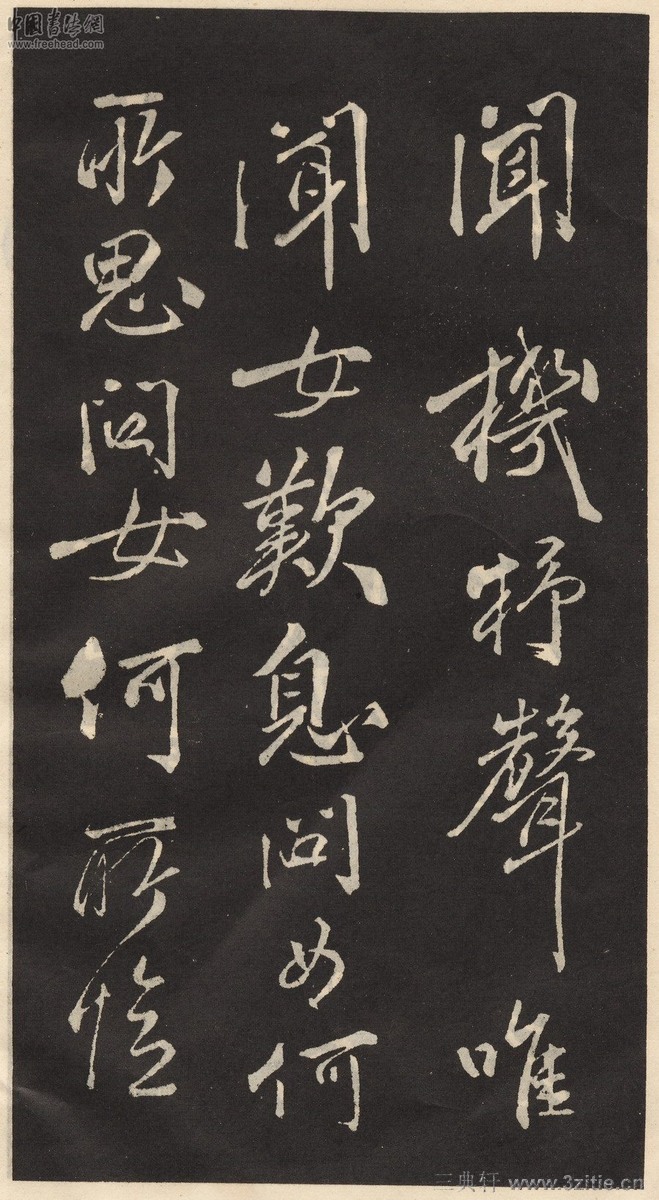 聞機杼聲唯
聞女歎息問女何
所思問女何所憶
中国书法网
www.freehead.com
三典轩 www.3zitie.cn